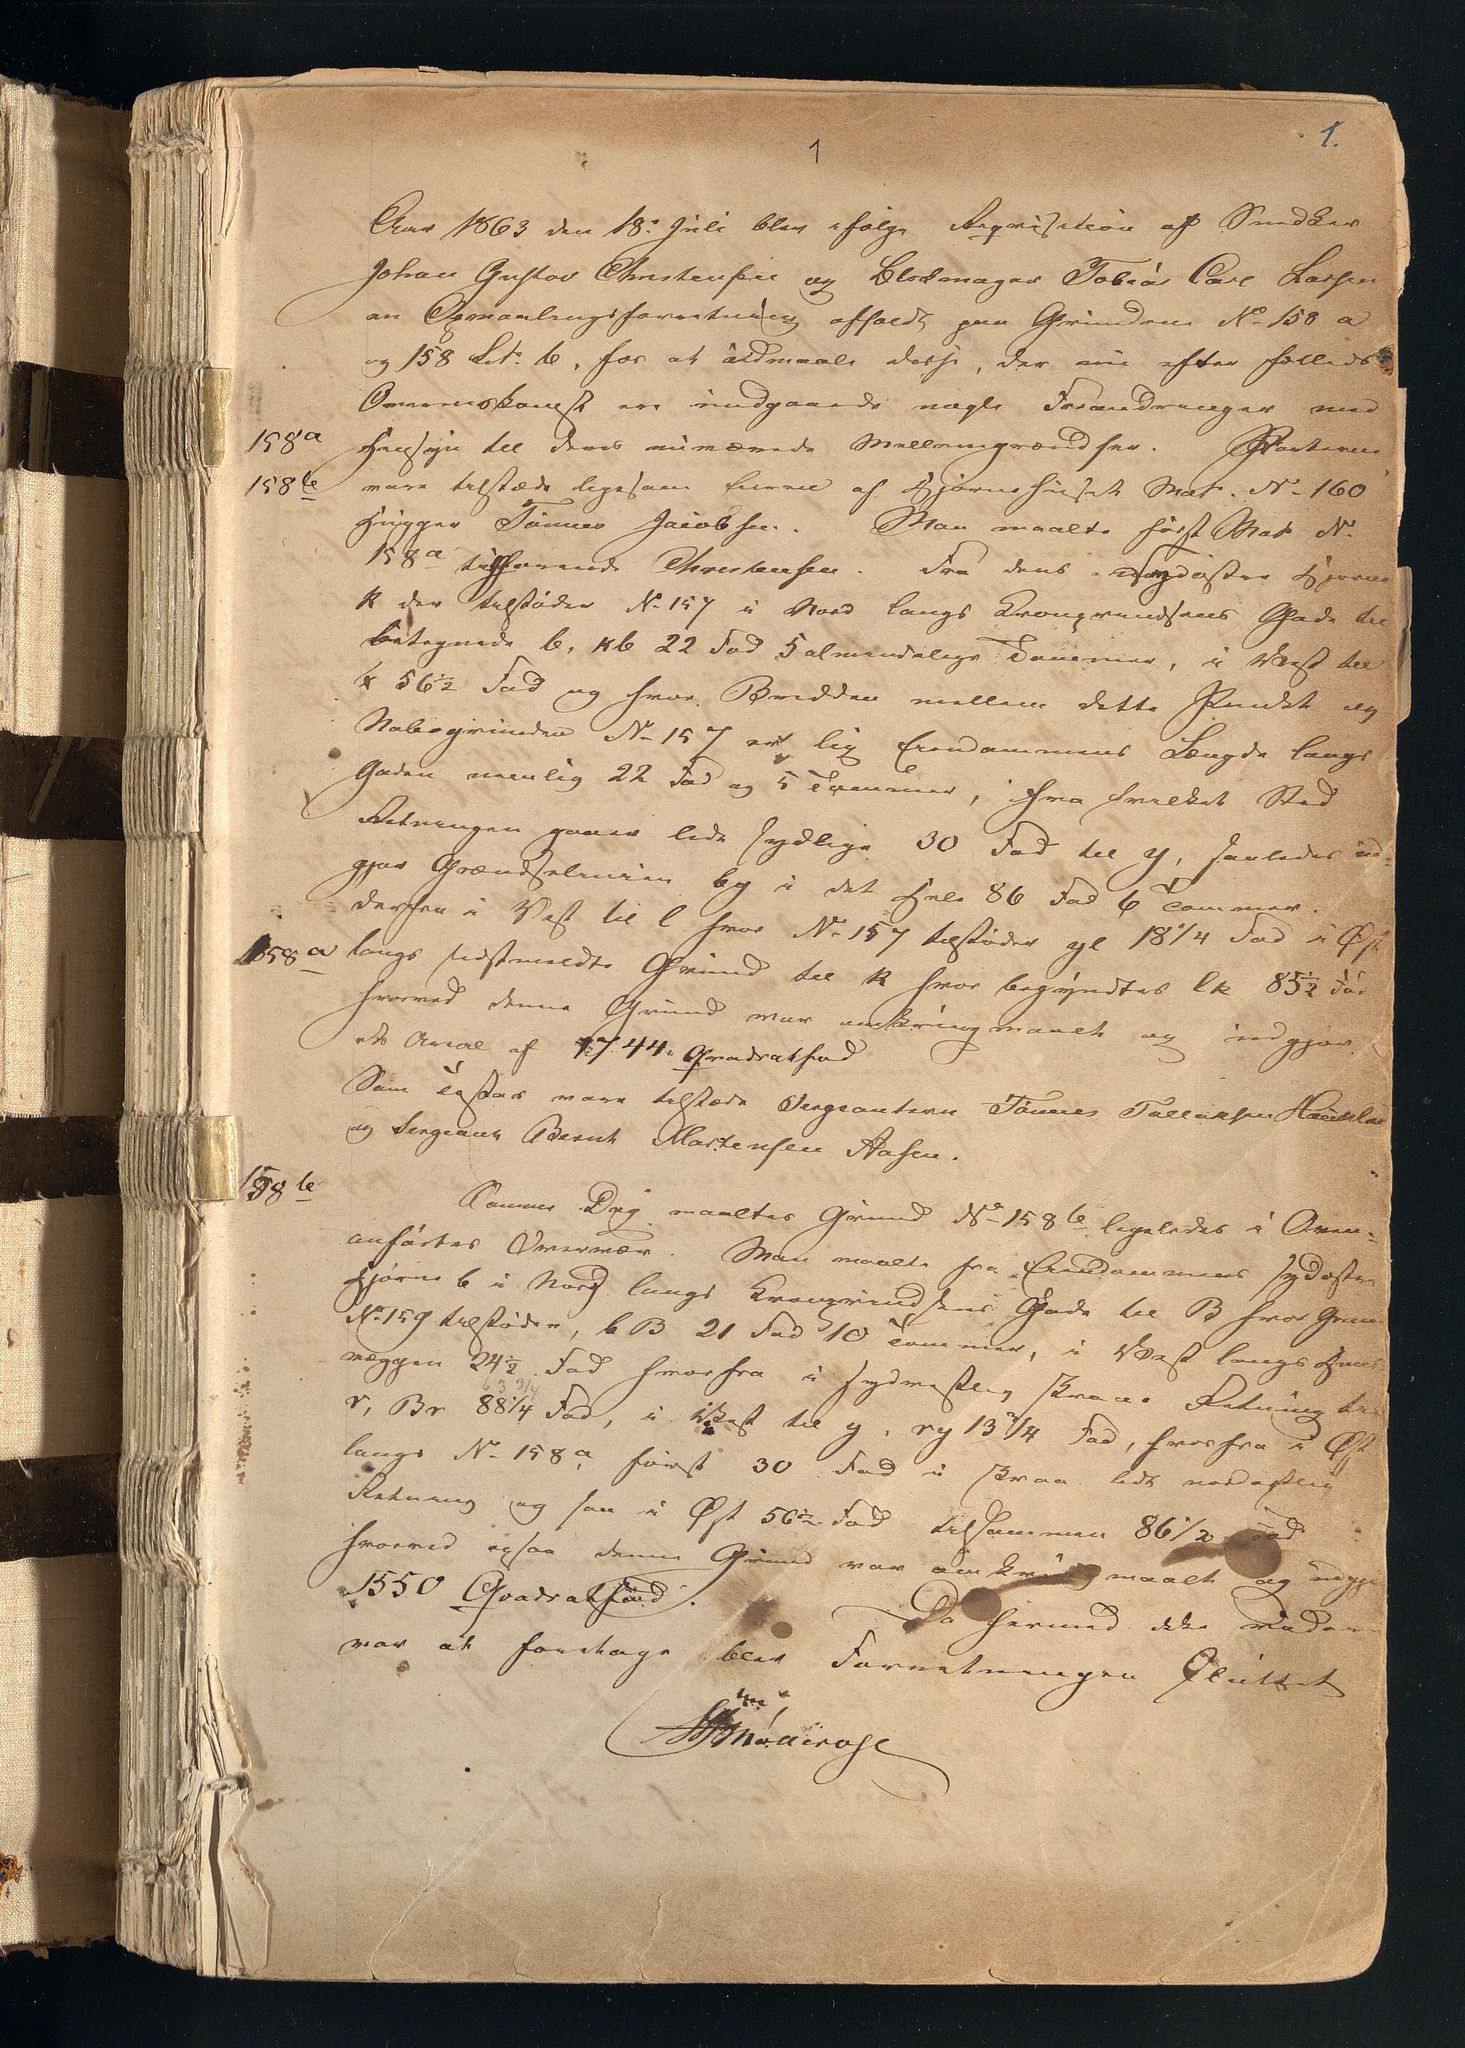 1
1.
Aar 1863 den 18. Juli blev ifølge Reqvisition af Snedker
Johan Gustav Christensen og Blokmager Tobias Carl Larsen
en Opmaalingsforretning afholdt paa Grundene No 158 a
og 158 Litr b, for at udmaale disse, der nu efter fælleds
Overenskomst ere undgaaede nogle Forandringer med
158a
Hensyn til deres nuværende Mellemgrændser. Parterne
158b
vare tilstæde ligesom Eieren af Hjørnehuset Matr. No 160
Hugger Tønnes Jacobsen. Man maalte først Matr No
158a tilhørende Christensen. Fra dens sydøstre Hjørne
k der tilstøder No 157 i Nord langs Krongrundsens Gade til
betegnede b, kb 22 Fod 5 almindelige Tommer, i Vest til
x 56 1/2 Fod og hvor Bredden mellem dette Punkt og
Nabogrunden No 157 er lig Eiendommens Længde langs
Gaden nemlig 22 Fod og 5 Tommer, fra hvilket Sted
Retningen gaaer lidt sydlige 30 Fod til y, saaledes ud-
gjør Grændselinien by i det Hele 86 Fod 6 Tommer.
derfra i Vest til l hvor No 157 tilstøder yl 18 1/4 Fod i Øst
158a
langs sidstmeldte Grund til k hvor begyndtes lk 85 1/2 Fod
hvorved denne Grund var omkring maalt og udgjør
et Areal af 1744 Qvadratfod
Som Testes vare tilstæde Sergeanterne Tønnes Tallaksen
og Sergeant Bernt Mortensen Aasen.
158b
Samme Dag maaltes Grund No 158b ligeledes i Oven-
anførtes Overvær. Man maalte fra Eiendommens sydøstre
Hjørne b i Nord langs Krongrundsens Gade til B hvor Grund
No 159 tilstøder, bB 21 Fod 10 Tommer, i Vest langs Huus
væggen 24 1/2 Fod hvorfra i sydvestlig skraae Retning til
63 3/4
r, Br 88 1/4 Fod, i Vest til y, ry 13 3/4 Fod, hvorfra i Øst
langs No 158a først 30 Fod i skraa lidt nordøstlig
Retning og saa i Øst 56 1/2 Fod tilsammen 86 1/2 Fod
hvorved ogsaa denne Grund var omkring maalt og udgjør
1550 Qvadratfod. Da hermed ikke videre
var at foretage blev Forretningen sluttet